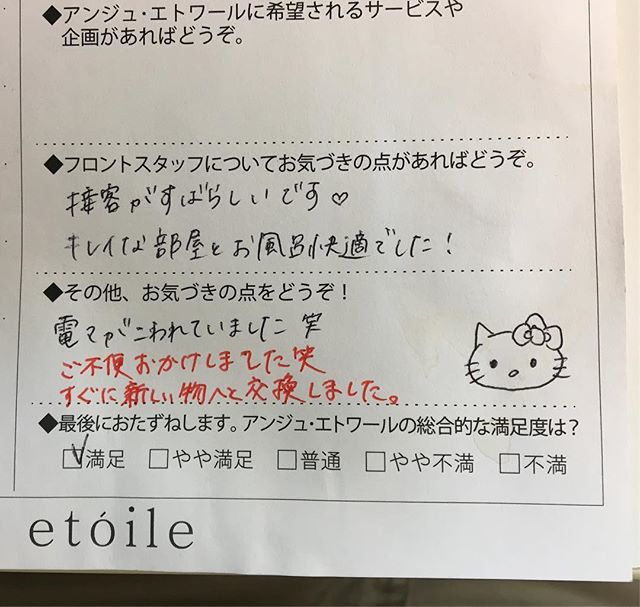 ◆アンジュ・エトワールに希望されるサービスや
企画があればどうぞ。
◆フロントスタッフについてお気づきの点があればどうぞ。
接客がすばらしいです♡
キレイな部屋とお風呂快適でした!
◆その他、お気づきの点をどうぞ!
電マがこわれていました 笑
ご不便おかけしました笑
すぐに新しい物へと交換しました。
◆最後におたずねします。アンジュ・エトワールの総合的な満足度は?
☑満足 □やや満足 □普通 □やや不満 □不満
etóile